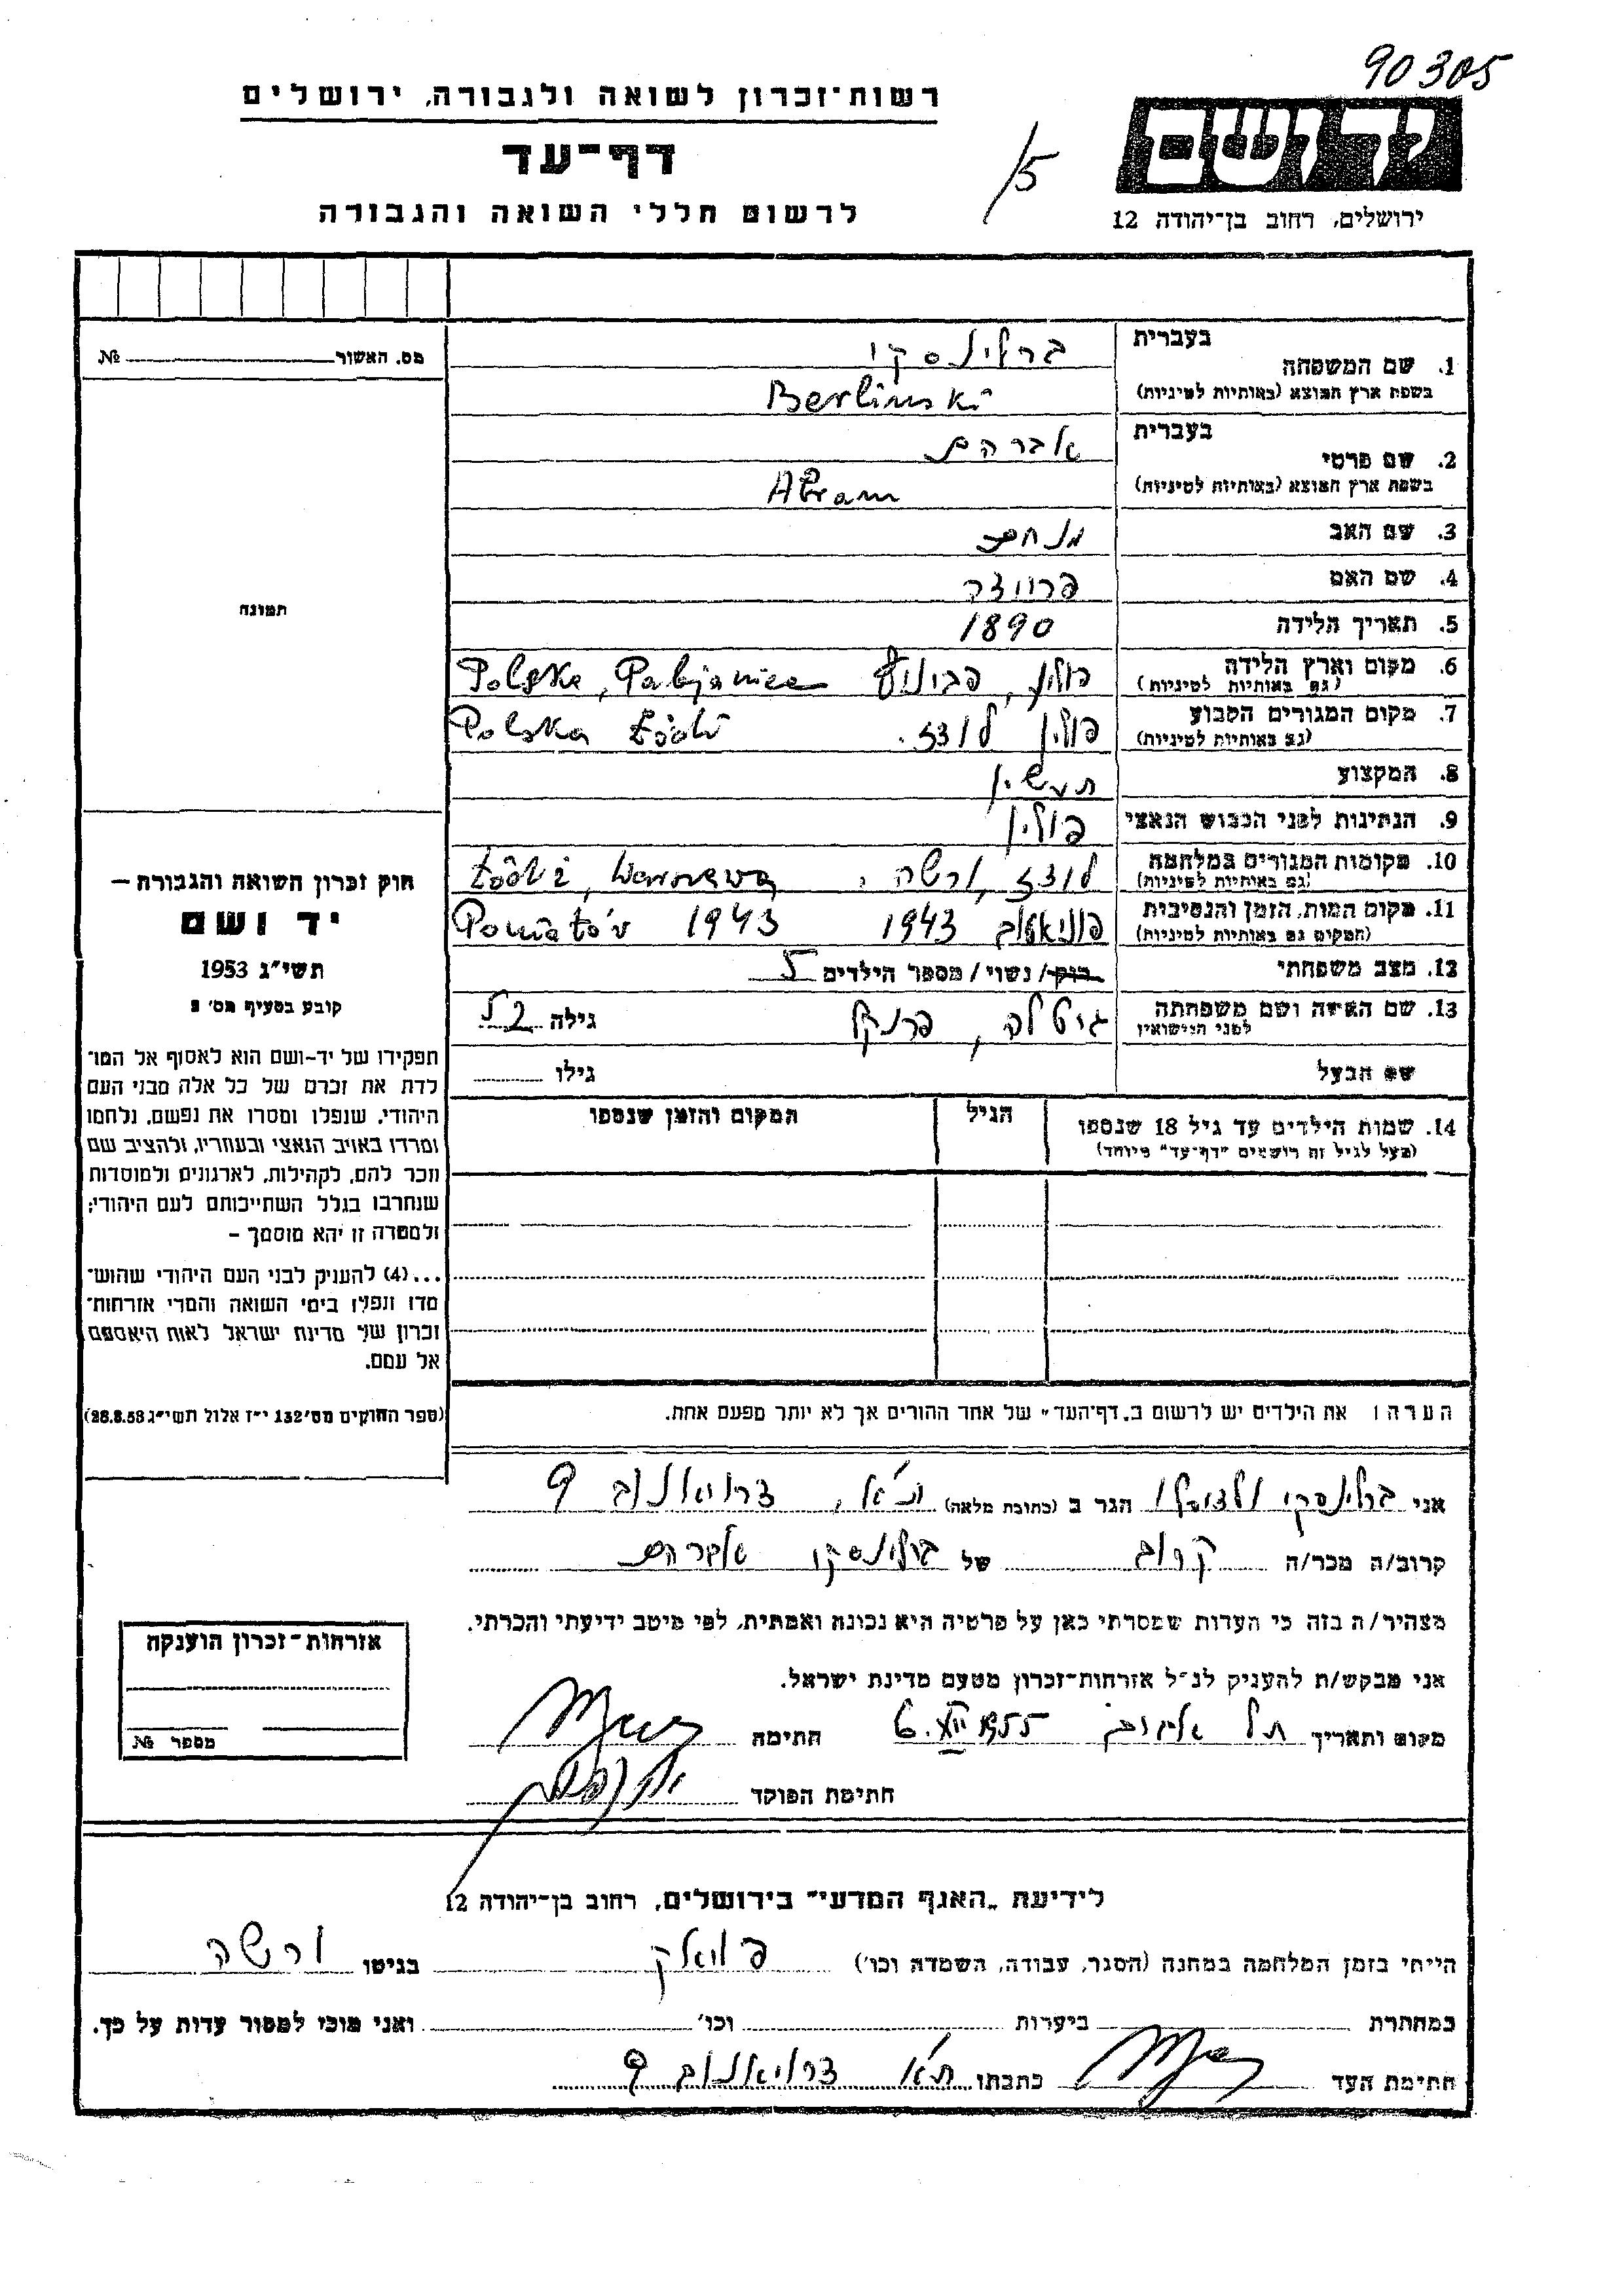 90305
רשות־זכרון לשואה ולגבורה, ירושלים
דף־עד
לרשום חללי השואה והגבורה
/5
יד ושם
ירושלים, רחוב בן־יהודה 12
מס. האשור № 
תמונה
1. שם המשפחה בעברית ברלינסקי
בשפת ארץ המוצא (באותיות לטיניות) Berlinski
2. שם פרטי בעברית אברהם
בשפת ארץ המוצא (באותיות לטיניות) Abram
3. שם האב מנחם
4. שם האם
5. תאריך הלידה 1890
6. מקום וארץ הלידה (גם באותיות לטיניות) פולין, Polska, Pabjanice
7. מקום המגורים הקבוע (גם באותיות לטיניות) פולין לודז. Polska Łódź
8. המקצוע תעשין
9. הנתינות לפני הכבוש הנאצי פולין
10. מקומות המגורים במלחמה (גם באותיות לטיניות) לודז, ורשה, Łódź, Warszawa
11. מקום המות, הזמן והנסיבות (המקום גם באותיות לטיניות) פוניאטוב 1943 Poniatów 1943
12. מצב משפחתי רווק / נשוי / מספר הילדים 5
13. שם האשה ושם משפחתה לפני הנישואין גיטלה, פרנקל גילה 52
שם הבעל גילו
14. שמות הילדים עד גיל 18 שנספו הגיל המקום והזמן שנספו
(מעל לגיל זה רושמים "דף־עד" מיוחד)
חוק זכרון השואה והגבורה —
יד ושם
תשי״ג 1953
קובע בסעיף מס׳ 2
תפקידו של יד־ושם הוא לאסוף אל המו־
לדת את זכרם של כל אלה מבני העם
היהודי, שנפלו ומסרו את נפשם, נלחמו
ומרדו באויב הנאצי ובעוזריו, ולהציב שם
וזכר להם, לקהילות, לארגונים ולמוסדות
שנחרבו בגלל השתייכותם לעם היהודי;
ולמטרה זו יהא מוסמך –
...(4) להעניק לבני העם היהודי שהוש־
מדו ונפלו בימי השואה והמרי אזרחות־
זכרון של מדינת ישראל לאות היאספם
אל עמם.
(ספר החוקים מס׳ 132 י״ז אלול תשי״ג 28.8.53)
הערה: את הילדים יש לרשום ב„דף־העד״ של אחד ההורים אך לא יותר מפעם אחת.
אני ברלינסקי הגר ב (כתובת מלאה) ת״א, דרויאנוב 9
קרוב/ה מכר/ה קרוב של ברלינסקי אברהם
מצהיר/ה בזה כי העדות שמסרתי כאן על פרטיה היא נכונה ואמתית, לפי מיטב ידיעתי והכרתי.
אני מבקש/ת להעניק לנ״ל אזרחות־זכרון מטעם מדינת ישראל.
מקום ותאריך תל אביב 6.XII 1955 חתימה
חתימת הפוקד
אזרחות־זכרון הוענקה
מספר №
לידיעת „האגף המדעי״ בירושלים, רחוב בן־יהודה 12
הייתי בזמן המלחמה במחנה (הסגר, עבודה, השמדה וכו׳) בגיטו ורשה
במחתרת ביערות וכו׳ ואני מוכן למסור עדות על כך.
חתימת העד כתבתו ת״א דרויאנוב 9